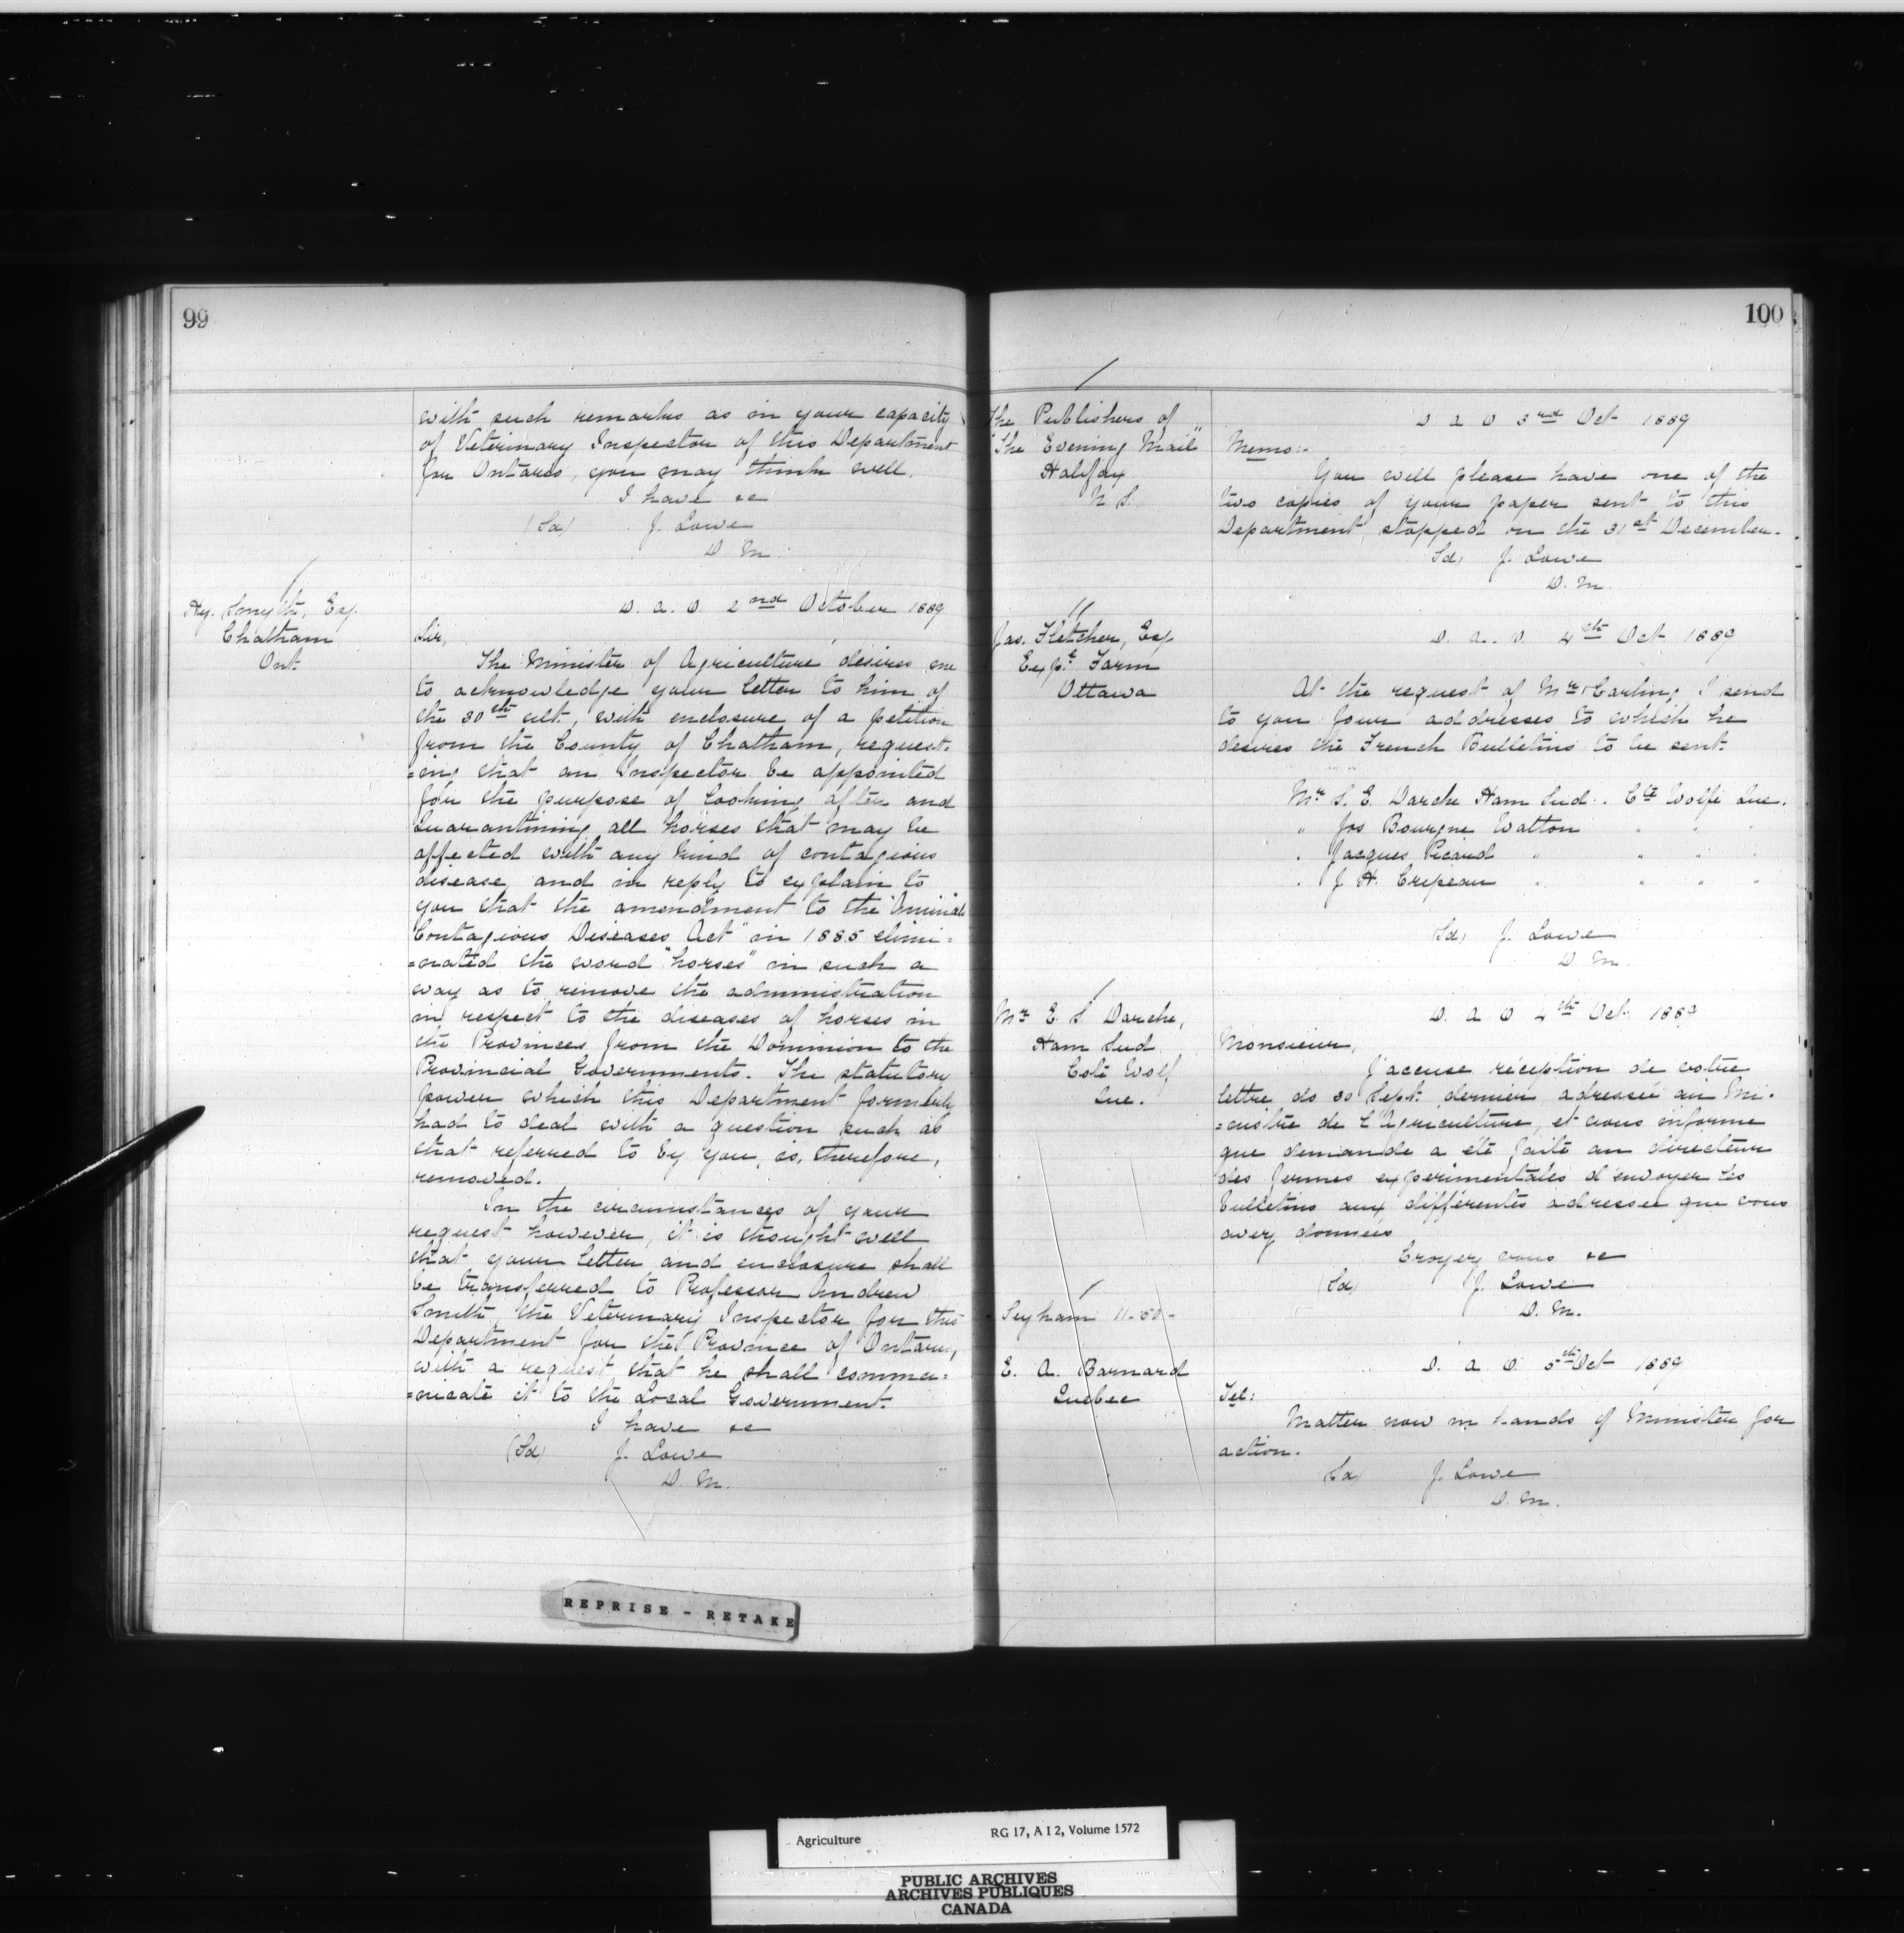 99
with such remarks as in your capacity
of Veterinary Inspector of this Department
for Ontario, you may think well.
I have &c
(Sd) J. Lowe
D. M.
Hy. Smyth, Esq.
Chatham
Ont.
D. a. O. 2nd October 1889
Sir,
The Minister of Agriculture desires me
to acknowledge your letter to him of
the 30th ult., with enclosure of a petition
from the County of Chatham, request-
=ing that an Inspector be appointed
for the purpose of looking after and
Quarantining all horses that may be
affected with any kind of contagious
disease, and in reply to explain to
you that the amendment to the "Animals
Contagious Diseases Act" in 1885 elimi=
=nated the word "horses" in such a
way as to remove the administration
in respect to the diseases of horses in
the Provinces from the Dominion to the
Provincial Governments. The statutory
power which this Department formerly
had to deal with a question such as
that referred to by you, is, therefore,
removed.
In the circumstances of your
request however, it is thought well
that your letter and enclosure shall
be transferred to Professor Andrew
Smith, the Veterinary Inspector for this
Department for the Province of Ontario,
with a request that he shall commu=
=nicate it to the Local Government.
I have &c
(Sd) J. Lowe
D. M.
REPRISE - RETAKE
100
The Publishers of
"The Evening Mail"
Halifax
N S.
D a O 3rd Oct 1889
Memo:-
You will please have one of the
two copies of your paper sent to this
Department, stopped on the 31st December.
Sd) J. Lowe
D. M.
Jas. Fletcher, Esq
Expt. Farm
Ottawa
D. a. O. 4th Oct 1889
At the request of Mr Carling I send
to you four addresses to which he
desires the French Bulletins to be sent.
Mr S. E. Darche Ham Sud. Cté Wolfe Que.
" Jos Bourgne Watton " " "
" Jacques Picard " " " "
" J. H. Crepeau " " " "
(Sd) J. Lowe
D M.
Mr E. S. Darche,
Ham Sud
Coté Wolf
Que.
D. a O 4th Oct. 1889
Monsieur,
J'accuse réception de votre
lettre do 30 Sept. dernier adressée au Mi-
=nistre de l'Agriculture, et vous informe
que demande a été faite au directeur
des fermes experimentales d'envoyer les
bulletins aux différentes adresses que vous
avez données
Croyez vous &c
(Sd) J. Lowe
D. M.
11-50-
E. A. Barnard
Quebec
D. a O. 5th Oct 1889
Tel:
Matter now in hands of Minister for
action.
(Sd) J. Lowe
D. M.
Agriculture RG 17, A I 2, Volume 1572
PUBLIC ARCHIVES
ARCHIVES PUBLIQUES
CANADA